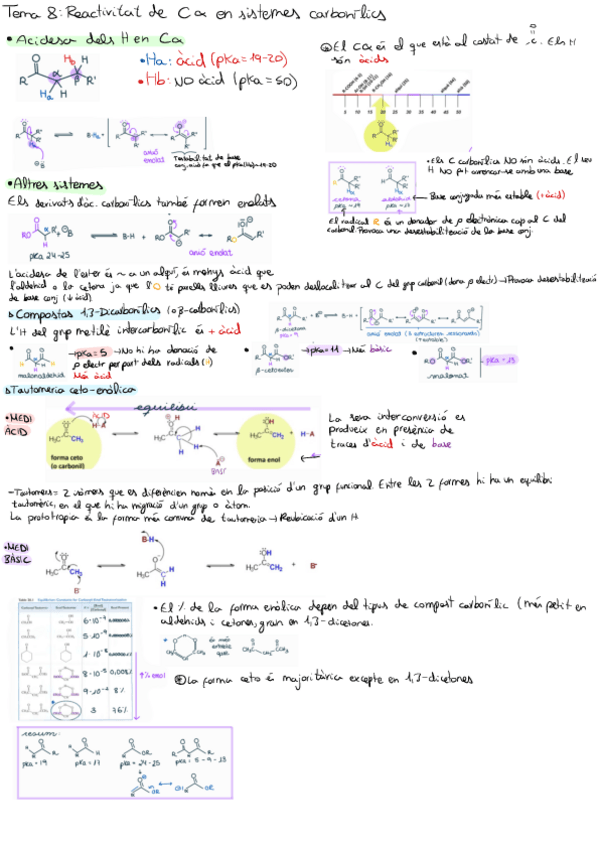 Tema 8: Reactivitat de Cα en sistemes carbonílics
• Acidesa dels H en Cα
• Ha: àcid (pKa = 19-20)
• Hb: NO àcid (pKa = 50)
El Cα és el que està al costat de C. Els H
són àcids
5 10 15 20 25 30 35 40 45 50
anió
enolat
• Els C carbonílics NO són àcids. El seu
H NO pot arrencar-se amb una base
Base conjugada més estable (+àcid)
El radical R és un donador de ρ electrònica cap al C del
carbonil. Provoca una desestabilització de la base conj.
• Altres sistemes
Els derivats d'àc. carboxílics també formen enolats
pKa 24-25
B-H
anió enolat
L'acidesa de l'ester és ~ a un alquí, és menys àcid que
l'aldehid o la cetona ja que l'O té parelles lliures que es poden deslocalitzar al C del grup carbonil (dona ρ electr) → Provoca desestabilització
de base conj (↓àcid)
Compostos 1,3-Dicarbonílics (o β-carbonílics)
L'H del grup metilè intercarbonílic és + àcid
β-dicetona
pKa = 9
malonaldehid
→ pKa = 5 → No hi ha donació de
ρ electr per part dels radicals (H)
Més àcid
β-cetoester
→ pKa = 11 → Més bàsic
malonat
pKa = 13
Tautomeria ceto-enòlica
equilibri
• MEDI
ÀCID
ÀCID
H-A
forma ceto
(o carbonil)
BASE
forma enol
La seva interconversió es
produeix en presència de
traces d'àcid i de base
- Tautòmers = 2 isòmers que es diferencien només en la posició d'un grup funcional. Entre les 2 formes hi ha un equilibri
tautomèric, en el que hi ha migració d'un grup o àtom.
La prototropia és la forma més comuna de tautomeria → Reubicació d'un H
• MEDI
BÀSIC
B-H
H₃C
CH₂
• El % de la forma enòlica depèn del tipus de compost carbonílic (més petit en
aldehids i cetones, gran en 1,3-dicetones.
és més
estable
que
↑% enol
8·10⁻⁵ 0,008%
9·10⁻² 8%
3 76%
La forma ceto és majoritària excepte en 1,3-dicetones
resum:
pKa = 19
pKa = 17
pKa = 24-25
pKa = 5-9-13